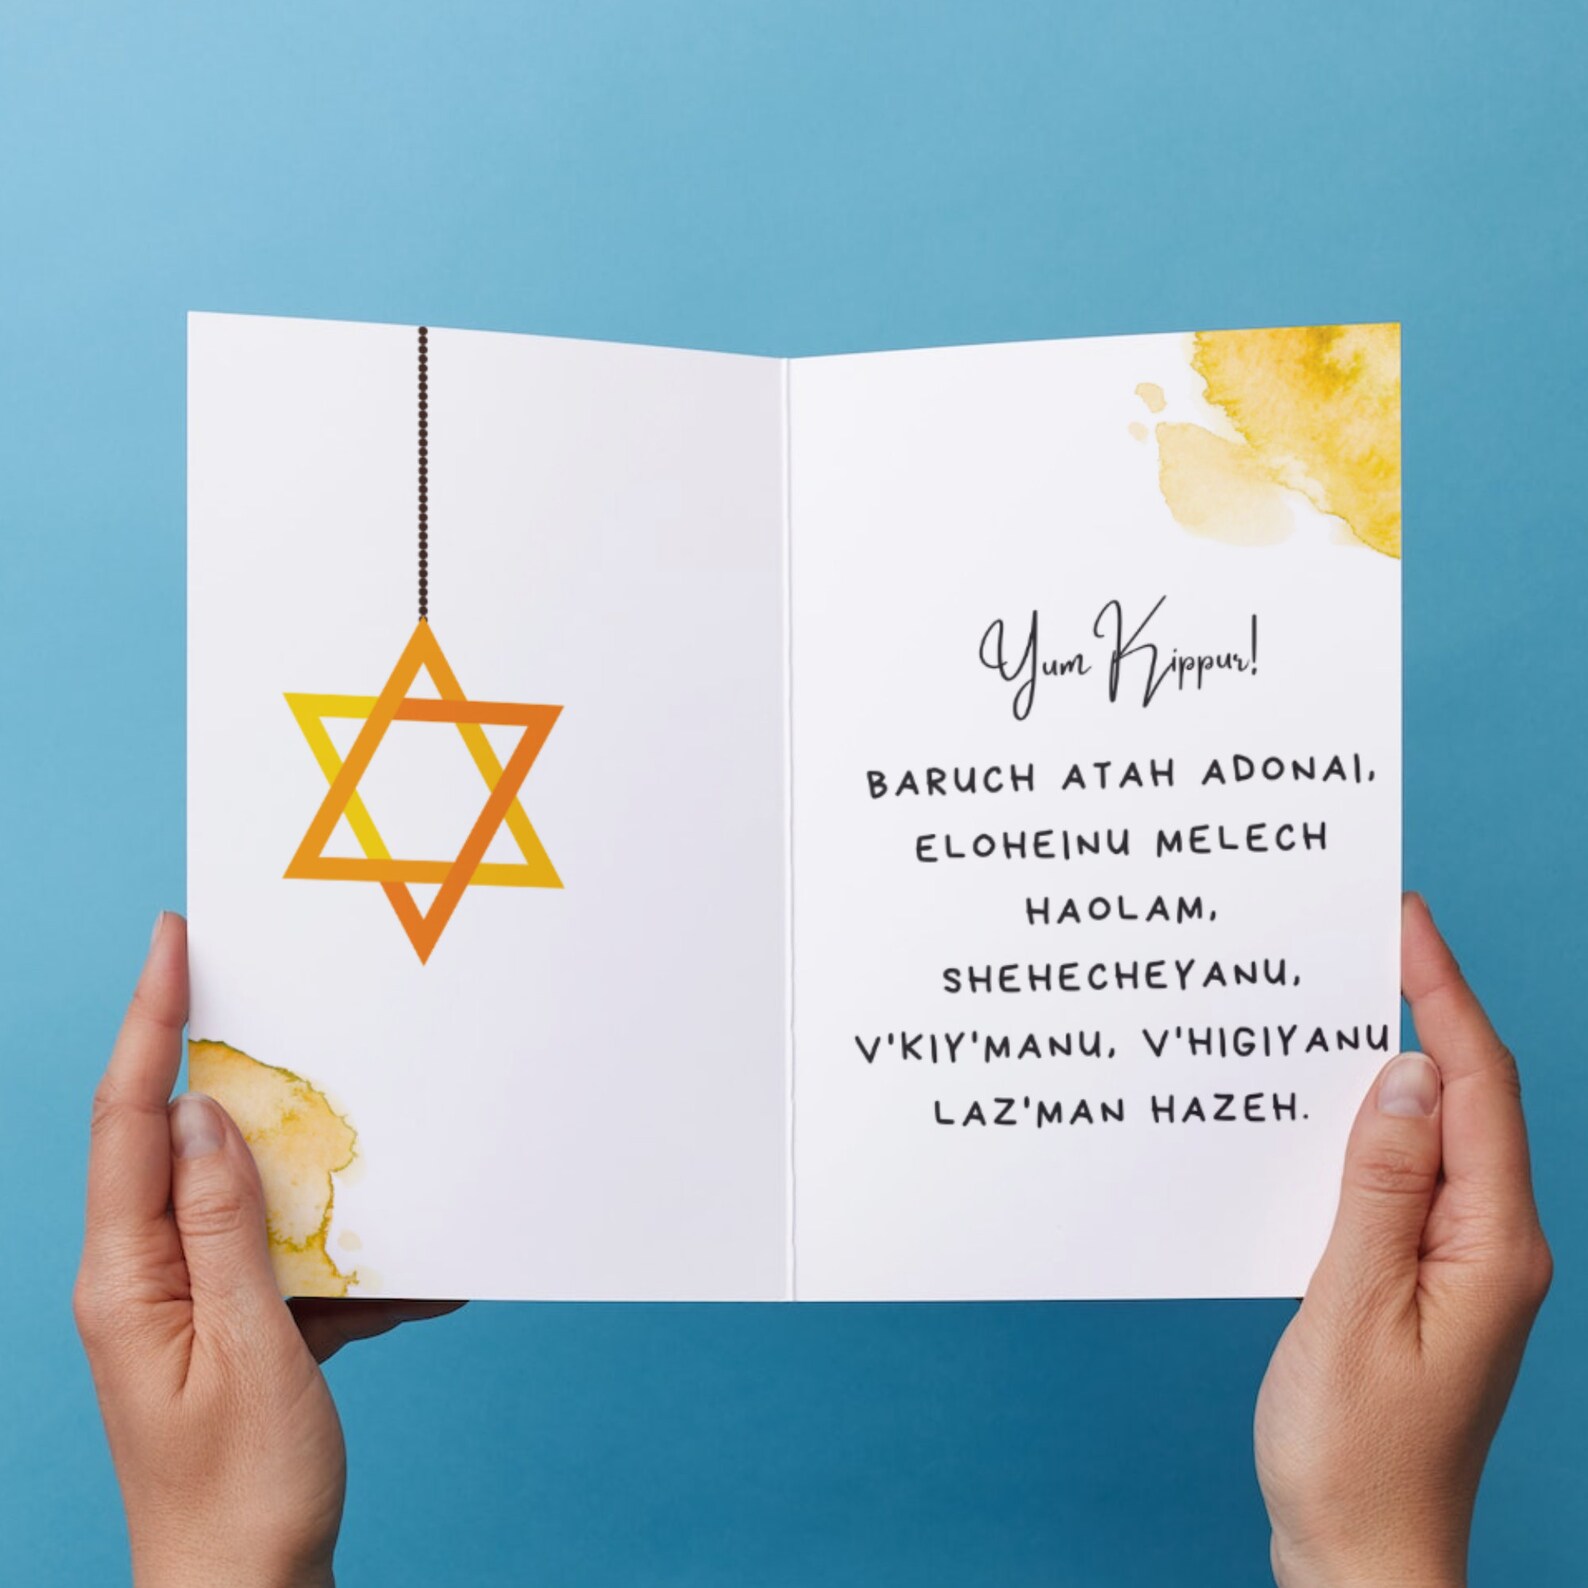 Yum Kippur!
BARUCH ATAH ADONAI,
ELOHEINU MELECH
HAOLAM,
SHEHECHEYANU,
V'KIY'MANU, V'HIGIYANU
LAZ'MAN HAZEH.